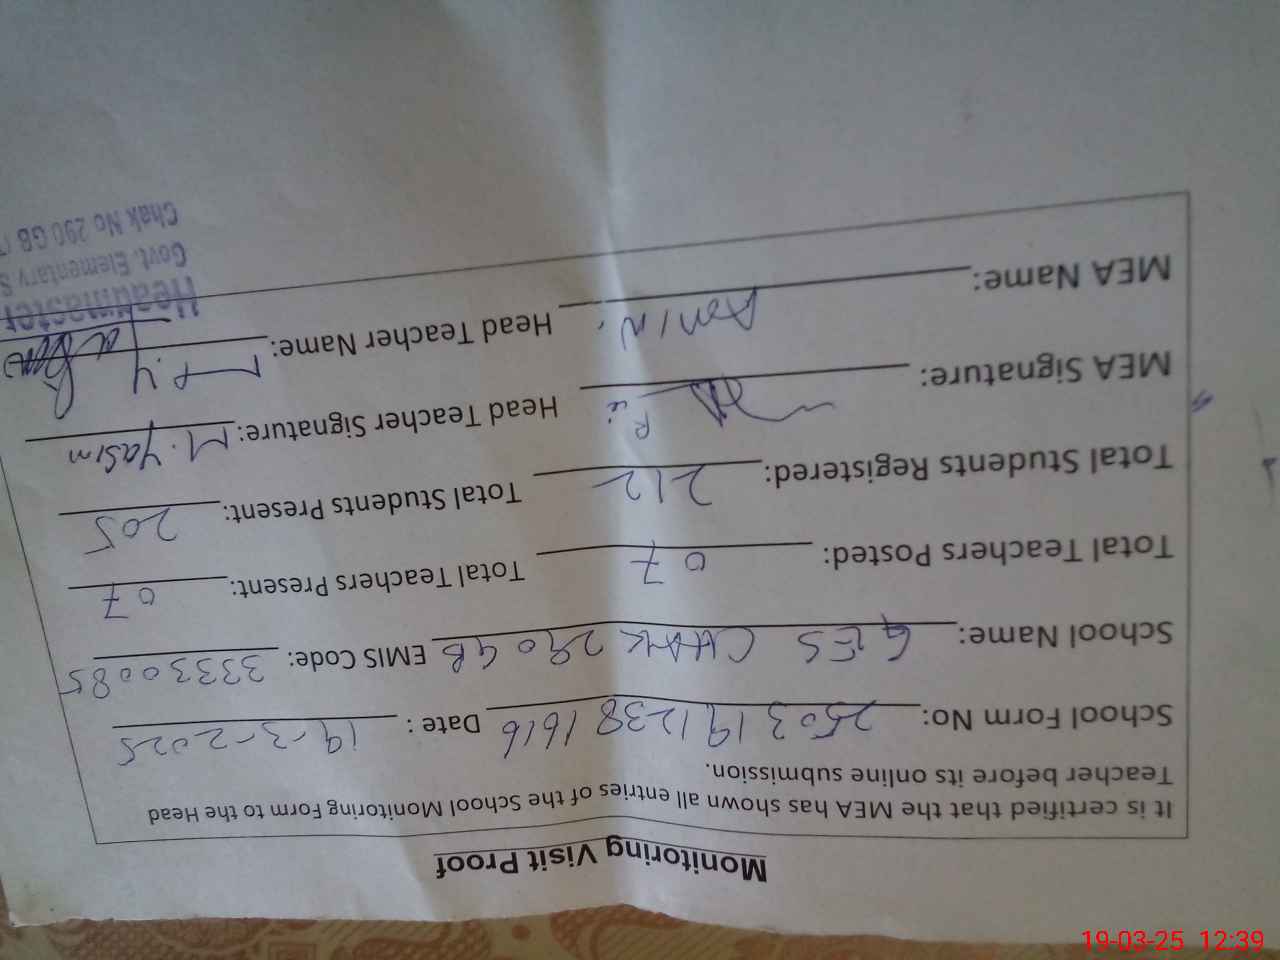 Monitoring Visit Proof
It is certified that the MEA has shown all entries of the School Monitoring Form to the Head
Teacher before its online submission.
School Form No: 2503191238 1616 Date : 19-3-2025
School Name: GES CHAK 290 GB EMIS Code: 33330085
Total Teachers Posted: 07 Total Teachers Present: 07
Total Students Registered: 212 Total Students Present: 205
MEA Signature: Head Teacher Signature: M. Yasim
MEA Name: AMIN. Head Teacher Name:
Headmaster
Govt. Elementary S
Chak No 290 GB
19-03-25 12:39